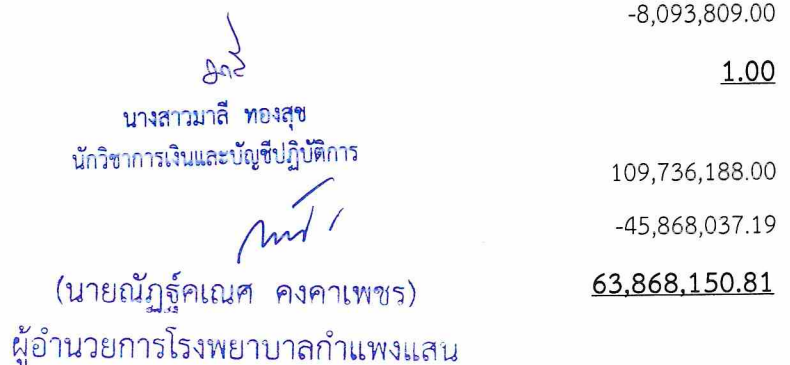 -8,093,809.00
1.00
นางสาวมาลี ทองสุข
นักวิชาการเงินและบัญชีปฏิบัติการ
109,736,188.00
-45,868,037.19
(นายณัฏฐ์คเณศ คงคาเพชร)
63,868,150.81
ผู้อำนวยการโรงพยาบาลกำแพงแสน